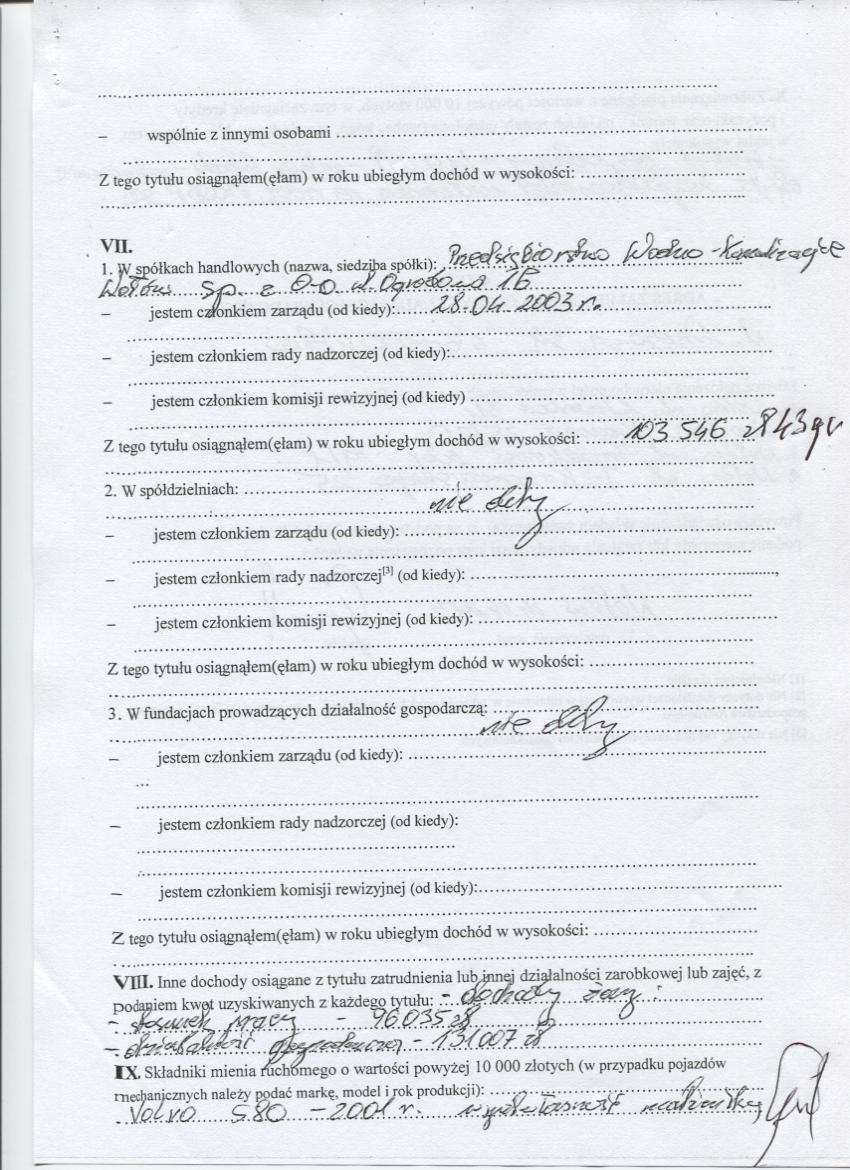 – wspólnie z innymi osobami
Z tego tytułu osiągnąłem(ęłam) w roku ubiegłym dochód w wysokości:
VII.
1. W spółkach handlowych (nazwa, siedziba spółki): Przedsiębiorstwo Wodno-Kanalizacyjne
Wołów Sp. z O.O ul. Ogrodowa 1B
– jestem członkiem zarządu (od kiedy): 28.04.2003 r.
– jestem członkiem rady nadzorczej (od kiedy):
– jestem członkiem komisji rewizyjnej (od kiedy)
Z tego tytułu osiągnąłem(ęłam) w roku ubiegłym dochód w wysokości: 103 546 zł 43 gr
2. W spółdzielniach:
nie dotyczy
– jestem członkiem zarządu (od kiedy):
– jestem członkiem rady nadzorczej[3] (od kiedy):
– jestem członkiem komisji rewizyjnej (od kiedy):
Z tego tytułu osiągnąłem(ęłam) w roku ubiegłym dochód w wysokości:
3. W fundacjach prowadzących działalność gospodarczą:
nie dotyczy
– jestem członkiem zarządu (od kiedy):
...
– jestem członkiem rady nadzorczej (od kiedy):
– jestem członkiem komisji rewizyjnej (od kiedy):
Z tego tytułu osiągnąłem(ęłam) w roku ubiegłym dochód w wysokości:
VIII. Inne dochody osiągane z tytułu zatrudnienia lub innej działalności zarobkowej lub zajęć, z
podaniem kwot uzyskiwanych z każdego tytułu: - dochody żony:
- stosunek pracy - 96035 zł
- działalność gospodarcza - 131007 zł
IX. Składniki mienia ruchomego o wartości powyżej 10 000 złotych (w przypadku pojazdów
mechanicznych należy podać markę, model i rok produkcji):
Volvo S80 - 2001 r. współwłasność małżeńska